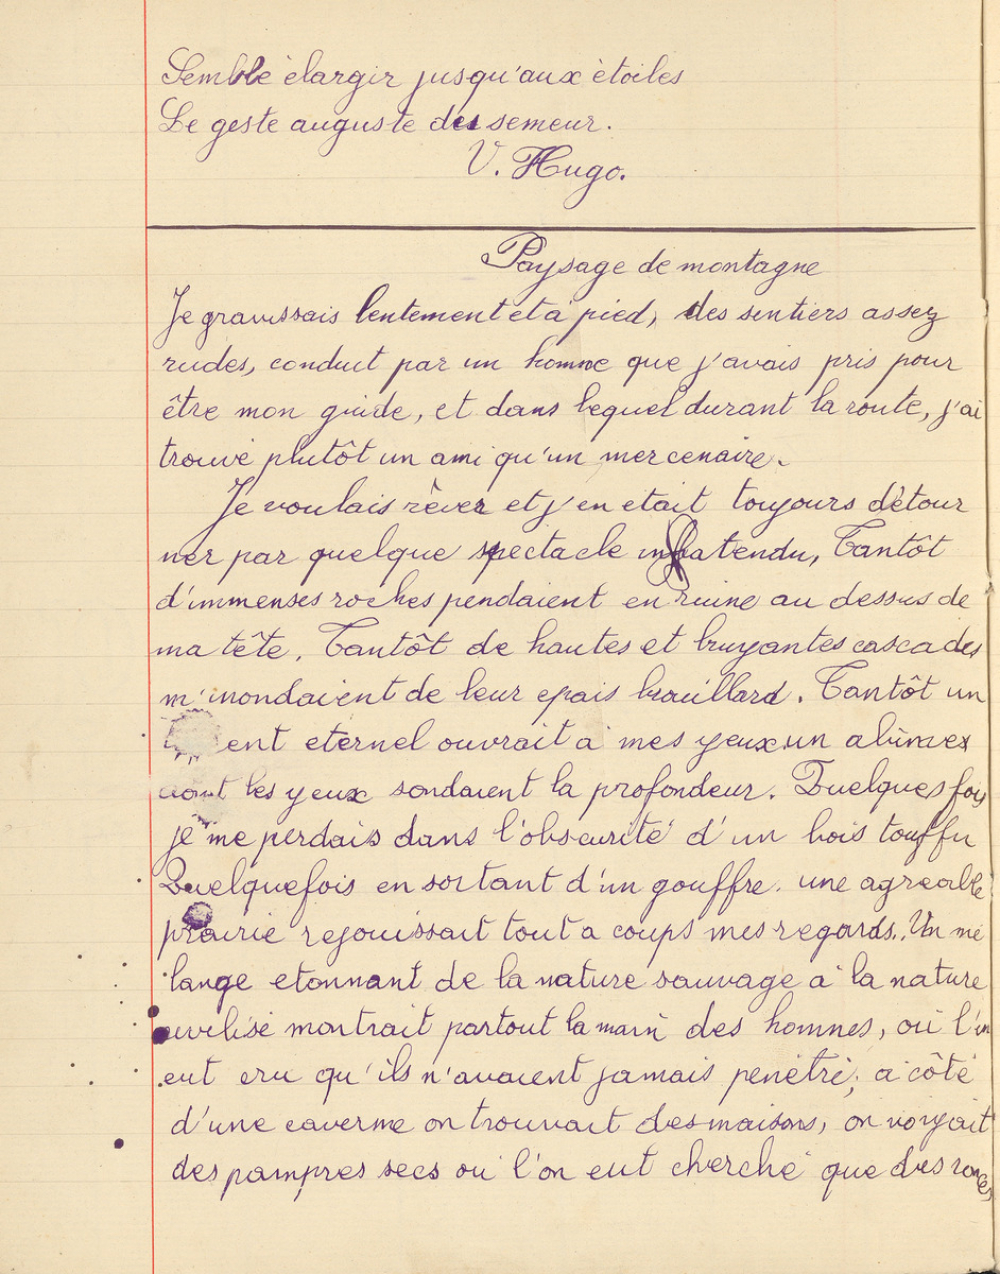 Semble élargir jusqu'aux étoiles
Le geste auguste des semeur.
V. Hugo.
Paysage de montagne
Je gravissais lentement et à pied, des sentiers assez
rudes, conduit par un homme que j'avais pris pour
être mon guide, et dans lequel durant la route, j'ai
trouvé plutôt un ami qu'un mercenaire.
Je voulais rêver et j'en etait toujours détour
ner par quelque spectacle inatendu, Tantôt
d'immenses roches pendaient en ruine au dessus de
ma tête. Tantôt de hautes et bruyantes cascades
m'inondaient de leur epais brouillard. Tantôt un
ent eternel ouvrait a mes yeux un abîmes
dont les yeux sondaient la profondeur. Quelques fois
je me perdais dans l'obscurité d'un bois touffu
Quelquefois en sortant d'un gouffre. une agreable
prairie rejouissait tout a coups mes regards. Un mé
lange etonnant de la nature sauvage à la nature
civilisé montrait partout la main des hommes, où l'on
eut cru qu'ils n'avaient jamais penétré; a côté
d'une caverme on trouvait des maisons, on voyait
des pampres secs ou l'on eut cherché que des ronces